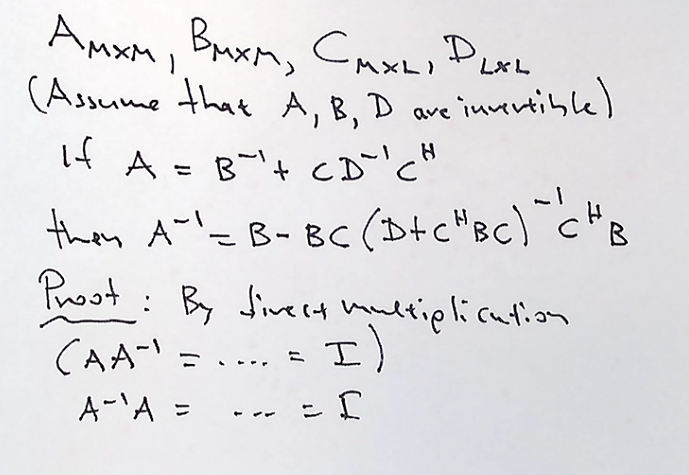 A_{M×M}, B_{M×M}, C_{M×L}, D_{L×L}
(Assume that A, B, D are invertible)
If A = B^{-1} + CD^{-1}C^H
then A^{-1} = B - BC(D+C^HBC)^{-1}C^HB
Proof: By direct multiplication
(AA^{-1} = .... = I)
A^{-1}A = ... = I